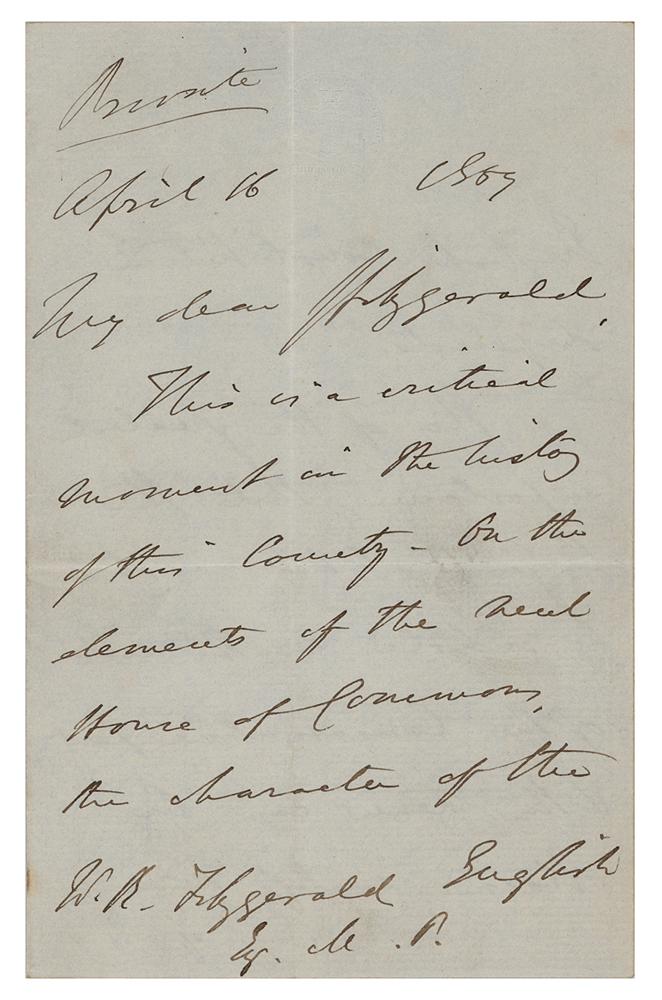 Private
April 16 1859
My dear Fitzgerald,
This is a critical
moment in the history
of this Country - On the
elements of the next
House of Commons,
the character of the
English
W. R. Fitzgerald
Esq. M.P.